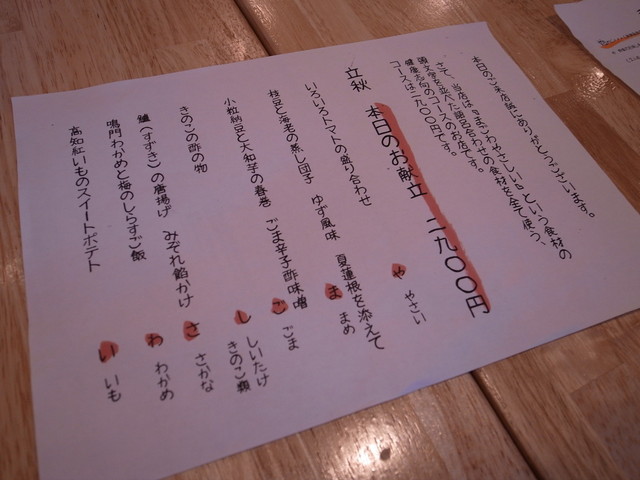 本日のご来店誠にありがとうございます。
さて、当店は『まごわやさしい』という食材の
頭文字を並べた語呂合わせの食材を全て使う、
健康志向のコースのお店です。
コースは二九〇〇円です。
立秋 本日のお献立 二九〇〇円
いろいろトマトの盛り合わせ や やさい
枝豆と海老の蒸し団子 ゆず風味 夏蓮根を添えて ま まめ
小粒納豆と大和芋の春巻 ごま辛子酢味噌 ご ごま
きのこの酢の物 し しいたけ
きのこ類
鱸(すずき)の唐揚げ みぞれ餡かけ さ さかな
鳴門わかめと梅のしらすご飯 わ わかめ
高知紅いものスイートポテト い いも